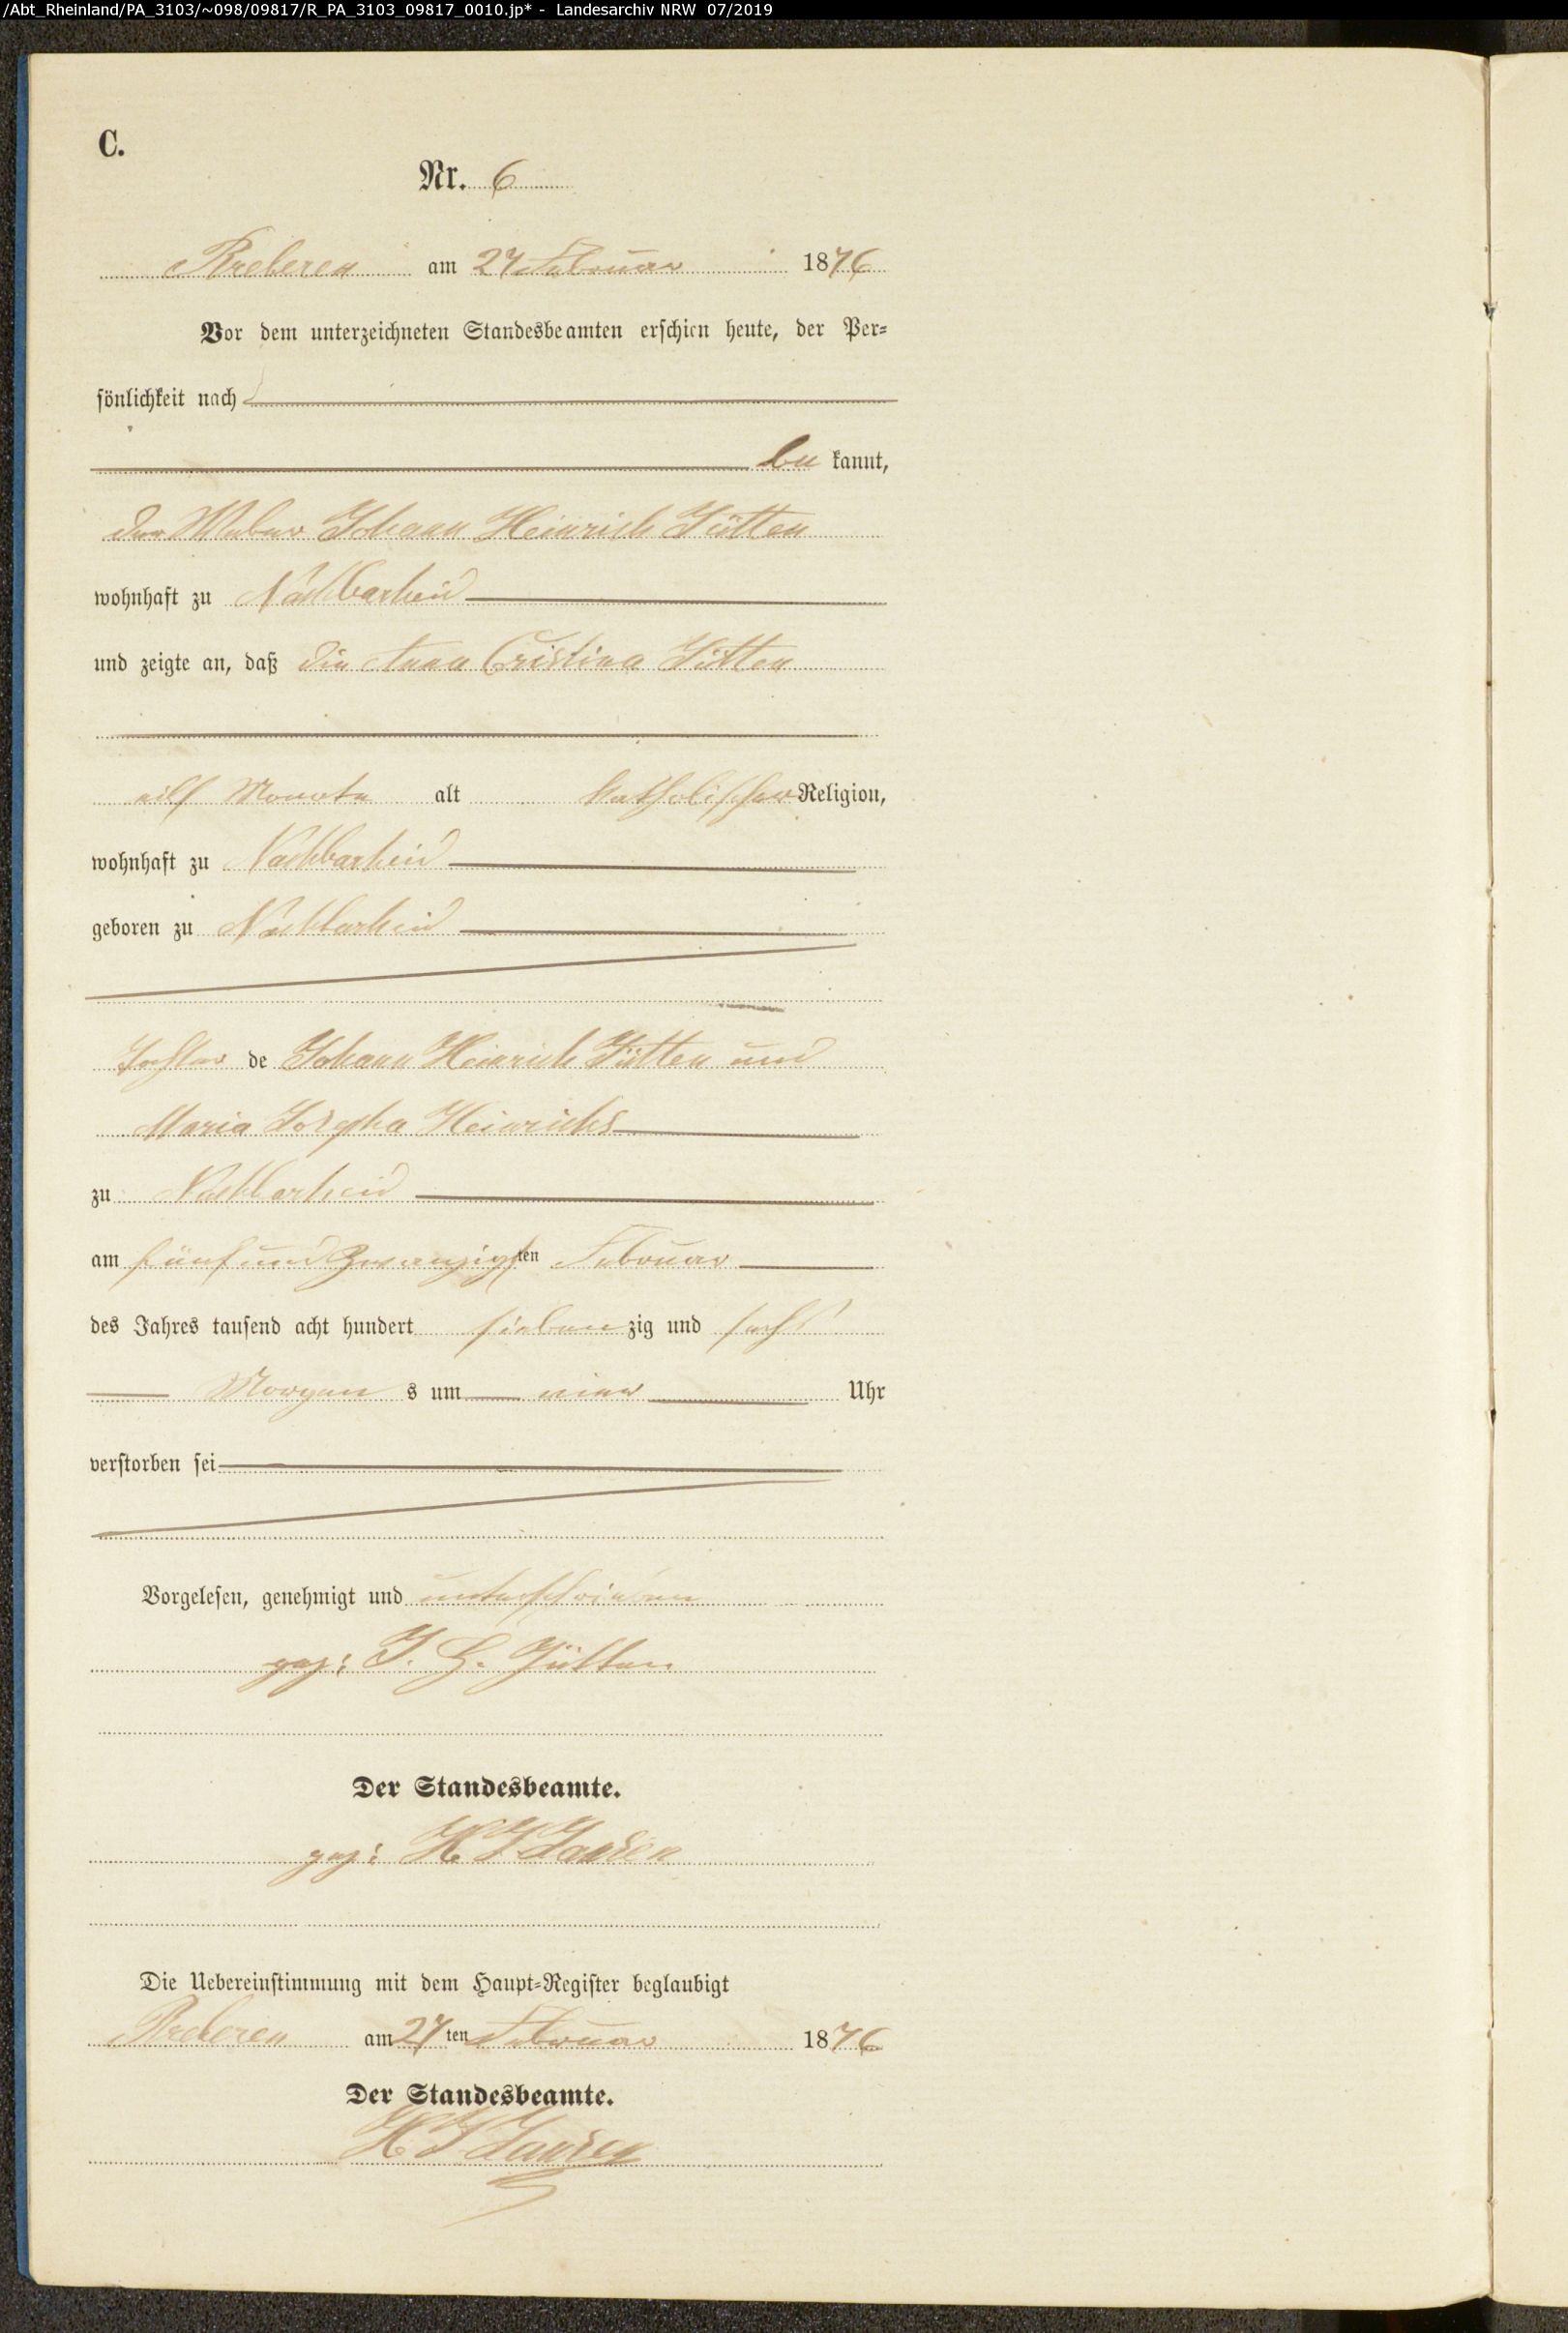 /Abt_Rheinland/PA_3103/~098/09817/R_PA_3103_09817_0010.jp* - Landesarchiv NRW 07/2019
C.
Nr. 6
Breberen am 27 Februar 1876
Vor dem unterzeichneten Standesbeamten erschien heute, der Per=
sönlichkeit nach
be kannt,
der Weber Johann Heinrich Jütten
wohnhaft zu Nachbarheid
und zeigte an, daß die Anna Cristina Jütten
eilf Monate alt katholischer Religion,
wohnhaft zu Nachbarheid
geboren zu Nachbarheid
Tochter de Johann Heinrich Jütten und
Maria Josepha Heinrichs
zu Nachbarheid
am fünf und zwanzigsten Februar
des Jahres tausend acht hundert siebenzig und sechs
Morgens um vier Uhr
verstorben sei
Vorgelesen, genehmigt und unterschrieben
gez: J. H. Jütten
Der Standesbeamte.
gez: H J Jansen
Die Uebereinstimmung mit dem Haupt=Register beglaubigt
Breberen am 27ten Februar 1876
Der Standesbeamte.
H J Jansen